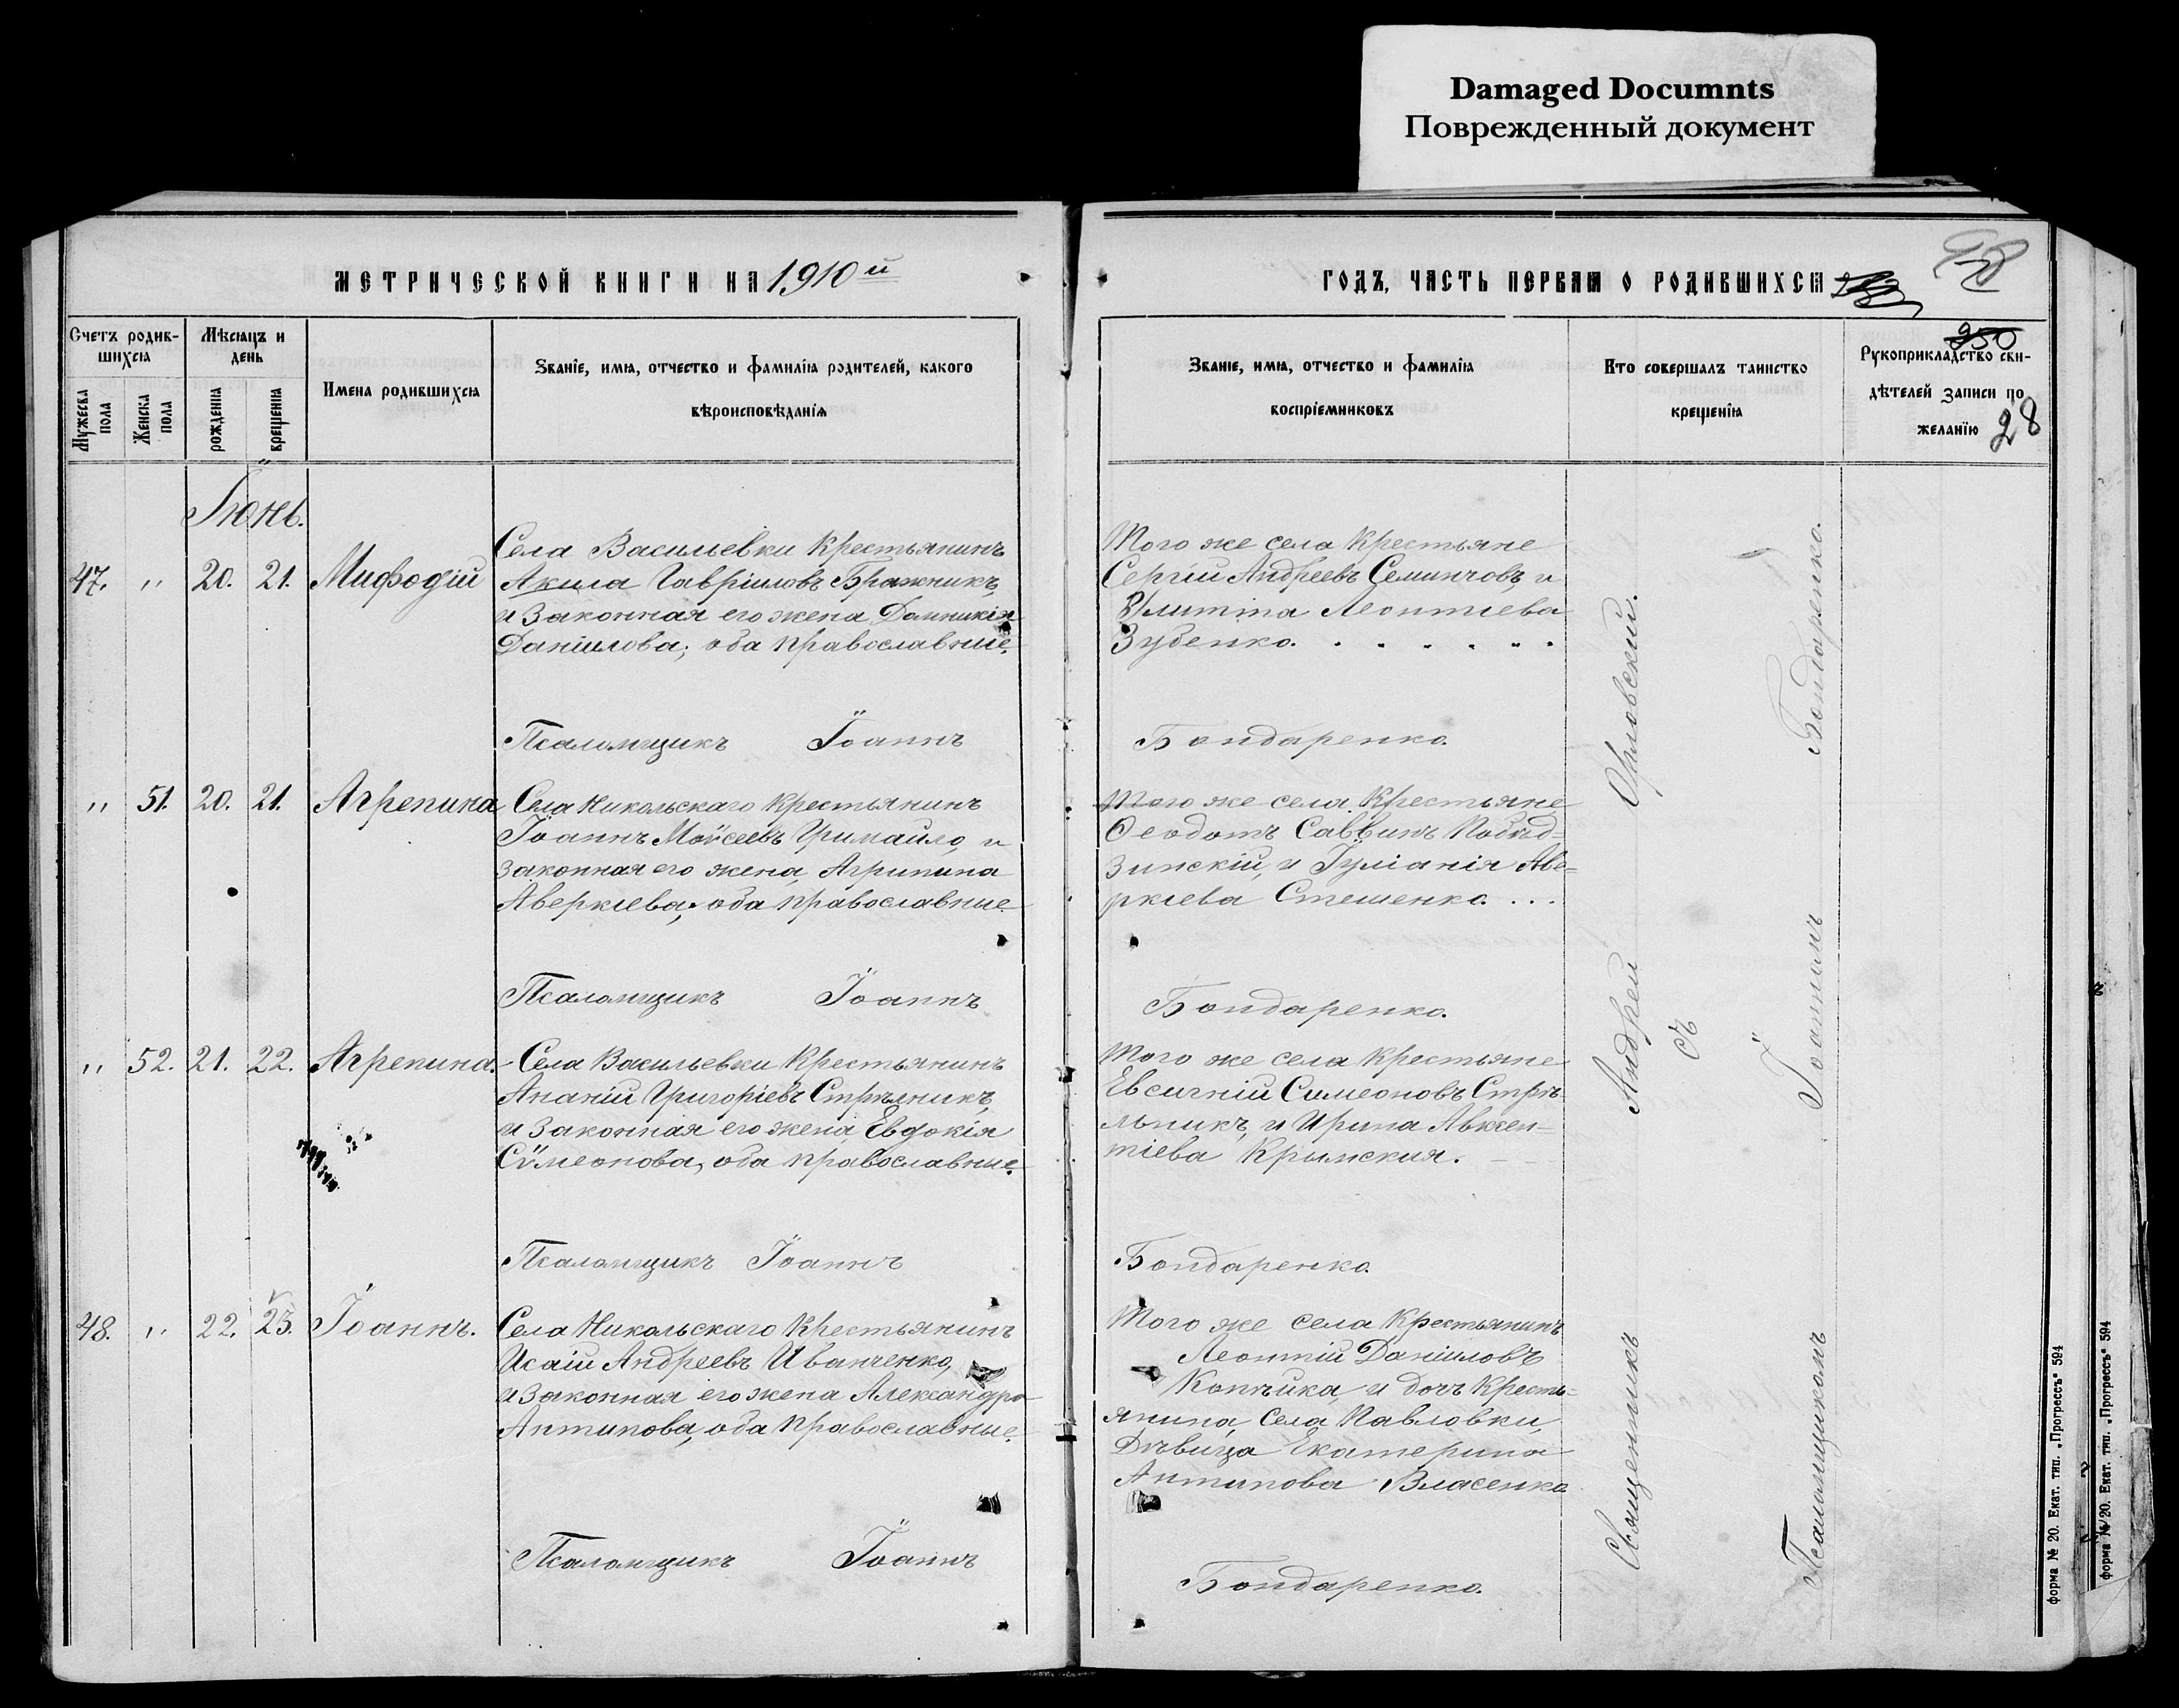 Damaged Documnts
Поврежденный документ
МЕТРИЧЕСКОЙ КНИГИ НА 1910й
Счетъ родив-
шихся
Мѣсяцъ и
день
Мужеска
пола
Женска
пола
рожденія
крещенія
Имена родившихся
Званіе, имя, отчество и фамилія родителей, какого
вѣроисповѣданія
Іюнь.
47. " 20. 21. Мифодій
Села Васильевки Крестьянинъ
Акила Гавріиловъ Бражникъ,
и законная его жена Домникія
Даніилова; оба православные.
Псаломщикъ Іоаннъ
" 51. 20. 21. Агрепина
Села Никольскаго Крестьянинъ
Іоаннъ Моѵсеевъ Гримайло, и
законная его жена, Агрипина
Аверкіева, оба православные
Псаломщикъ Іоаннъ
" 52. 21. 22. Агрепина.
Села Васильевки Крестьянинъ
Ананій Григоріевъ Стрѣлникъ,
и законная его жена Евдокія
Сѵмеонова, оба православные.
Псаломщикъ Іоаннъ
48. " 22. 23. Іоаннъ.
Села Никольскаго Крестьянинъ
Исаій Андреевъ Иванченко,
и законная его жена Александра
Антипова, оба православные.
Псаломщикъ Іоаннъ
ГОДЪ, ЧАСТЬ ПЕРВАЯ О РОДИВШИХСЯ
58
250
28
Званіе, имя, отчество и фамилія
воспріемниковъ
Кто совершалъ таинство
крещенія
Рукоприкладство сви-
дѣтелей записи по
желанію
Того же села Крестьяне
Сергій Андреевъ Семинчовъ, и
Улитта Леонтіева
Зубенко.
Бондаренко.
Того же села Крестьяне
Ѳеодотъ Саввинъ Побѣд-
зинскій, и Іуліанія Аве=
ркіева Стешенко. ...
Бондаренко.
Того же села Крестьяне
Евсигній Симеоновъ Стрѣ-
льникъ, и Ирина Авксен=
тіева Крымская.
Бондаренко.
Того же села Крестьянинъ
Леонтій Даніиловъ
Копѣйка, и дочь Кресть=
янина, села Павловки,
Дѣвица Екатерина
Антипова Власенко
Бондаренко.
Священникъ Андрей Орловскій.
съ
Псаломщикомъ Іоанномъ Бондаренко.
форма № 20. Екат. тип. „Прогрессъ“ 594
форма № 20. Екат. тип. „Прогрессъ“ 594